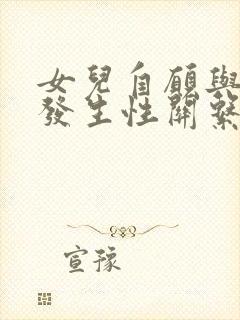 女兒自願與
發生性關系
宣豫